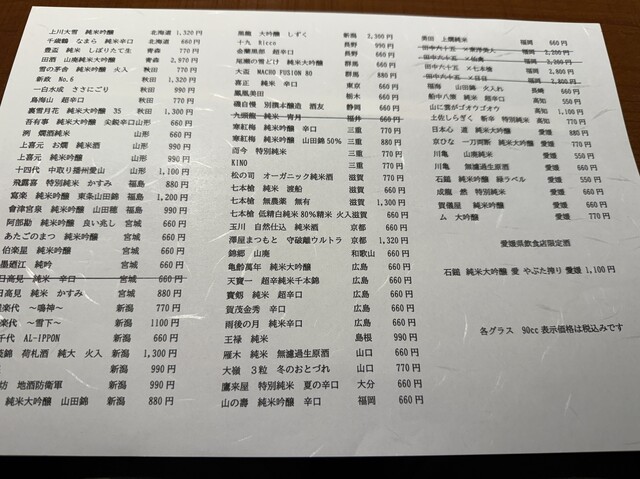 上川大雪 純米吟醸 北海道 1,320 円
千歳鶴 なまら 純米辛口 北海道 660 円
豊盃 純米 しぼりたて生 青森 770 円
田酒 山廃純米大吟醸 青森 2,970 円
雪の茅舎 純米吟醸 火入 秋田 770 円
新政 No.6 秋田 1,320 円
一白水成 ささにごり 秋田 990 円
鳥海山 超辛口 秋田 770 円
純米大吟醸 35 秋田 1,100 円
吾有事 純米大吟醸 尖鋭辛口山形 660 円
洌 燗酒純米 山形 660 円
上喜元 お燗 純米酒 山形 660 円
上喜元 純米吟醸 山形 990 円
十四代 中取り播州愛山 山形 1,100 円
飛露喜 特別純米 かすみ 福島 880 円
寫楽 純米吟醸 東条山田錦 福島 1,200 円
會津宮泉 純米吟醸 山田穂 福島 990 円
阿部勘 純米吟醸 良い兆し 宮城 660 円
あたごのまつ 純米吟醸 宮城 660 円
伯楽星 純米吟醸 宮城 770 円
墨廼江 純吟 宮城 660 円
日高見 純米 辛口 宮城 660 円
日高見 純米 かすみ 宮城 880 円
楽代 ～鳴神～ 新潟 770 円
楽代 ～雪下～ 新潟 1100 円
千代 AL-IPPON 新潟 660 円
錦 荷札酒 純大 火入 新潟 1,300 円
新潟 990 円
坊 地酒防衛軍 新潟 990 円
純米大吟醸 山田錦 新潟 880 円
大吟醸 しずく 新潟 2,300 円
十九 Ricco 長野 990 円
金蘭黒部 超辛口 長野 660 円
尾瀬の雪どけ 純米大吟醸 群馬 770 円
大盃 MACHO FUSION 80 群馬 880 円
喜正 純米 辛口 東京 660 円
鳳凰美田 栃木 660 円
磯自慢 別撰本醸造 酒友 静岡 660 円
九頭龍 純米 福井 660 円
寒紅梅 純米吟醸 辛口 三重 770 円
寒紅梅 純米吟醸 山田錦 50% 三重 880 円
而今 特別純米 三重 990 円
KINO 三重 770 円
松の司 オーガニック純米酒 滋賀 770 円
七本槍 純米 渡船 滋賀 660 円
七本槍 純米 無農薬 無有 滋賀 1,300 円
七本槍 低精白純米 80%精米 火入滋賀 660 円
玉川 自然仕込 純米酒 京都 660 円
澤屋まつもと 守破離ウルトラ 京都 1,320 円
錦郷 山廃 和歌山 660 円
亀齢萬年 純米大吟醸 広島 660 円
天寶一 超辛純米千本錦 広島 660 円
寶剱 純米 超辛口 広島 880 円
賀茂金秀 辛口 広島 660 円
雨後の月 純米辛口 広島 660 円
王祿 純米 島根 990 円
雁木 純米 無濾過生原酒 山口 770 円
大嶺 3粒 冬のおとづれ 山口 770 円
鷹来屋 特別純米 夏の辛口 大分 660 円
山の壽 純米吟醸 辛口 福岡 660 円
美田 上撰純米 福岡 660 円
田中六十五 福岡 2,200 円
田中六十五 福岡 2,200 円
田中六十五 ×七本槍 福岡 2,800 円
田中六十五 福岡 2,800 円
福海 山田錦 火入れ 長崎 660 円
船中八策 純米 超辛口 高知 550 円
山に雲がゴオウゴオウ 高知 1,100 円
土佐しらぎく 斬辛 特別純米 高知 770 円
日本心 道 純米大吟醸 愛媛 880 円
京ひな 一刀両断 純米大吟醸 愛媛 770 円
川亀 山廃純米 愛媛 550 円
川亀 無濾過生原酒 愛媛 660 円
石鎚 純米吟醸 緑ラベル 愛媛 550 円
成龍 然 特別純米 愛媛 660 円
賀儀屋 純米吟醸 愛媛 660 円
ム 大吟醸 愛媛 770 円
愛媛県飲食店限定酒
石鎚 純米大吟醸 愛 やぶた搾り 愛媛 1,100 円
各グラス 90cc 表示価格は税込みです